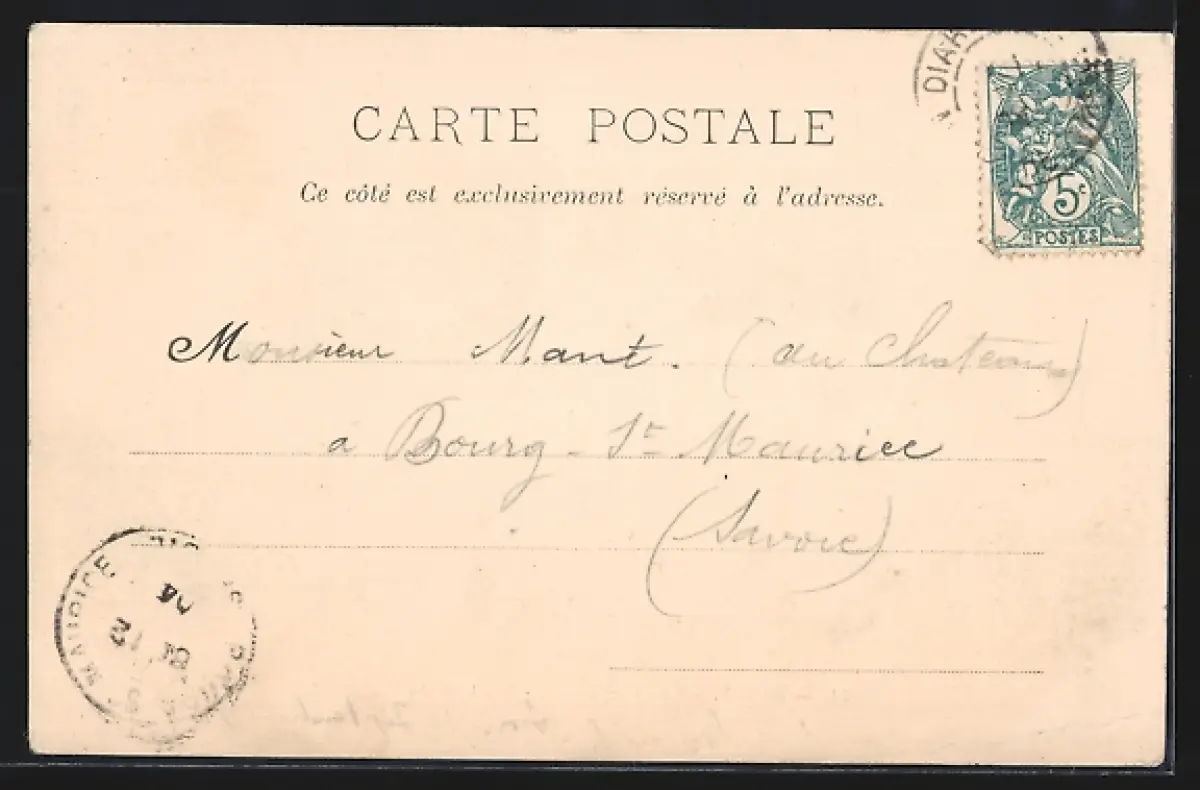 CARTE POSTALE
Ce côté est exclusivement réservé à l'adresse.
DIAR
5c
POSTES
Monsieur Mant. (au Chateau)
à Bourg-St Maurice
(Savoie)
MAURICE
12
04